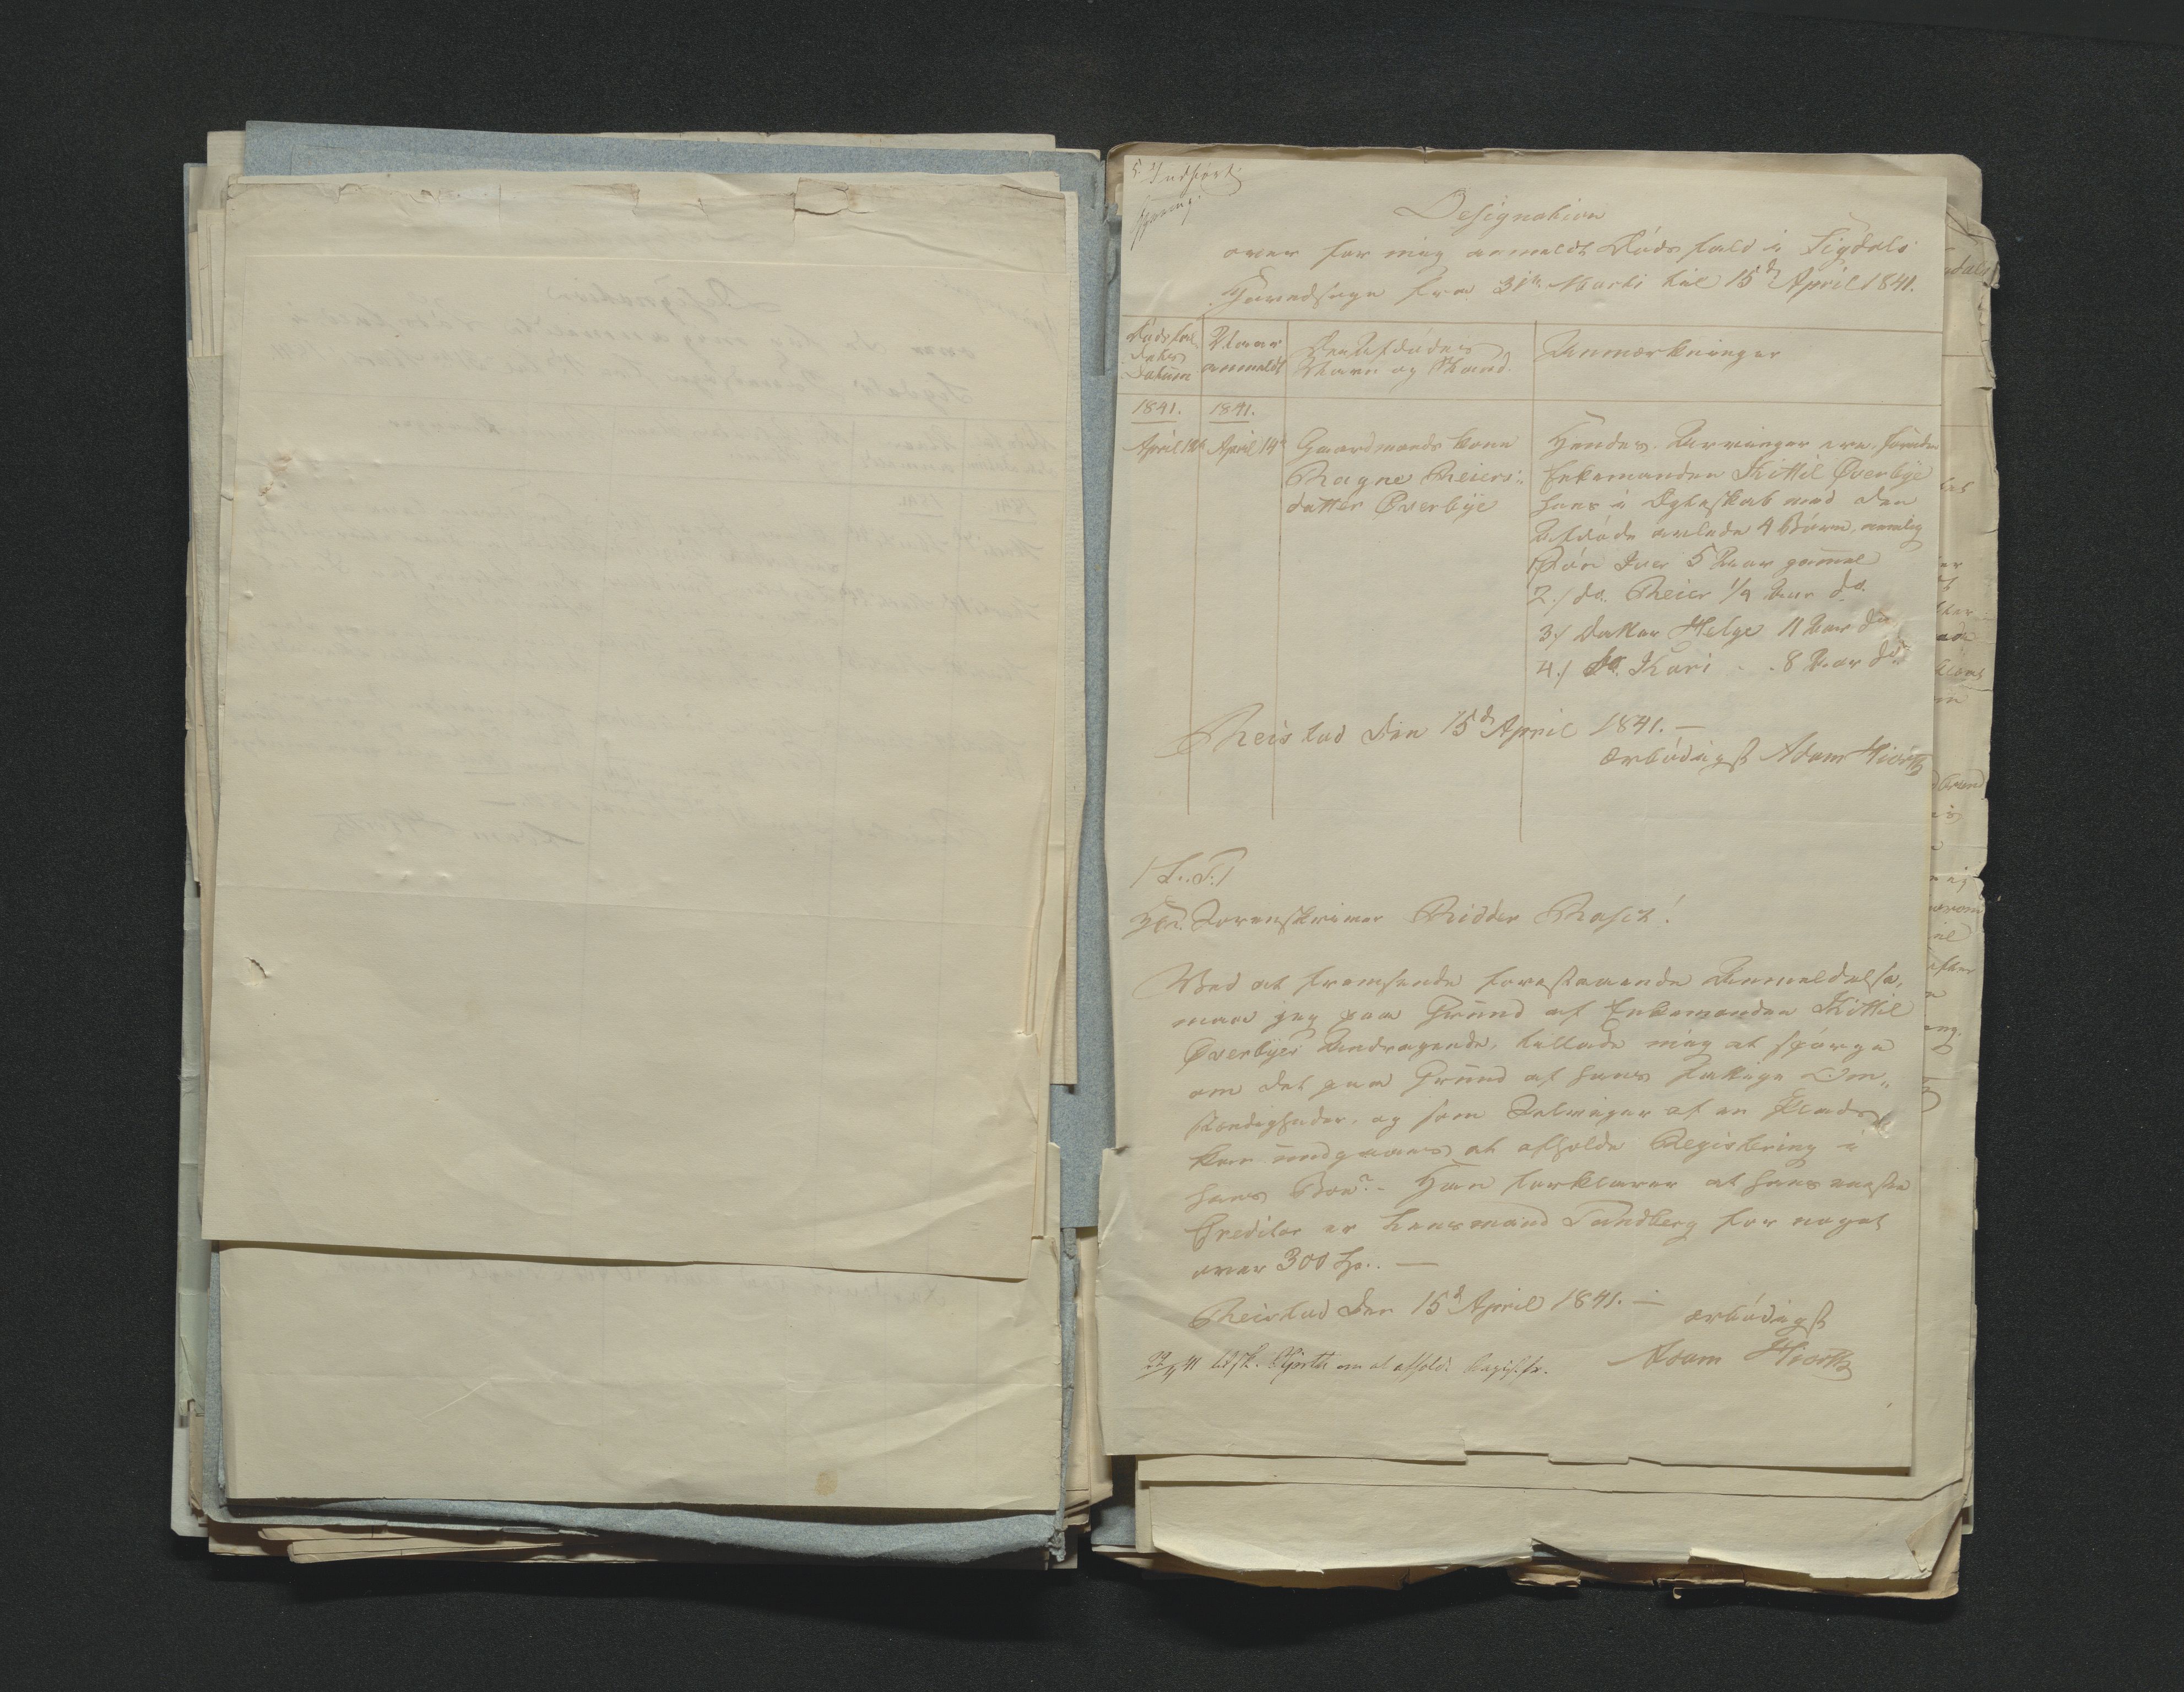 Indført
Designation
over for mig anmeldt Dödsfald i Sigdals
Tinghauge fra 31te Marti til 15de April 1841.
Dødsfal-
dets
Datum
Naar
anmeldt
Den Afdødes
Navn og Stand.
Anmærkninger
1841.
1841.
April
April 14de
Gaardmands kone
Ragne Reiers-
datter Øverbye
Hendes Arvinger ere foruden
Enkemanden Kittil Øverbye
hans i Ægteskab med den
Afdøde avlede 4 Børn, nemlig
1/ Sön Iver 5 Aar gammel
2./ do. Reier 1/4 Aar do.
3./ Datter Helge 11 Aar do
4./ do. Kari - - 8 Aar do
Reistad den 15de April 1841. —
ærbödigst Adam Hiorth
/S. T./
Hr. Sorenskriver Ridder Rasch!
Ved at fremsende forestaaende Anmeldelse,
maae jeg paa Grund af Enkemanden Kittil
Øverbyes Andragende, tillade mig at spørge
om det paa Grund af hans fattige Om„
stændigheder, og som Selveier af en Plads
kan undgaaes at afholde Registrering i
hans Boe? - Han forklarer at hans meste
Creditor er Lensmand Sandberg for noget
over 300 Sp.. —
Reistad den 15de April 1841. —
ærbödigst
Adam Hiorth
22/4 41 tilsk. Hjorth om at afhold. Registr.